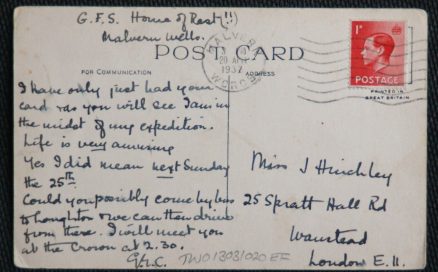 G.F.S. Home of Rest!!)
Malvern Wells.
POST CARD
FOR COMMUNICATION
ADDRESS
MALVERN
1937
WORCS
1D
POSTAGE
PRINTED IN
GREAT BRITAIN
I have only just had your
card & as you will see I am in
the midst of my expedition.
Life is very amusing
Yes I did mean next Sunday
the 25th.
Could you possibly come by bus
to Loughton & we can then drive
from there. I will meet you
at the Crown at 2.30.
Miss J Hinchley
25 Spratt Hall Rd
Wanstead
London E.11.
TW013031020EF